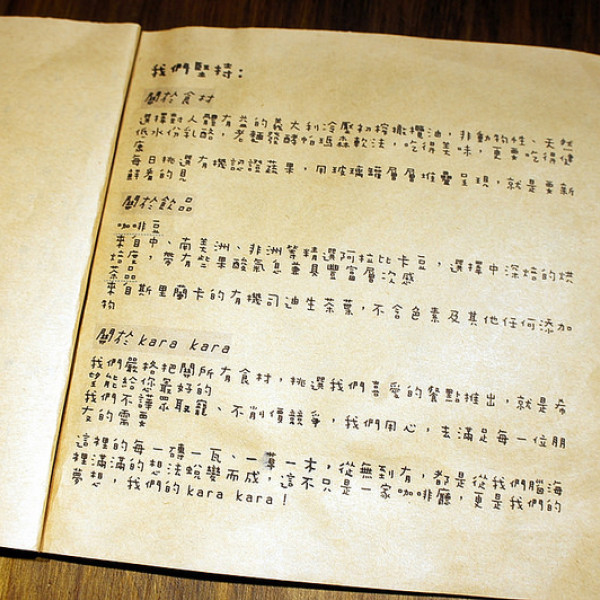 我們堅持：
關於食材
選擇對人體有益的義大利冷壓初榨橄欖油，非動物性、天然
低水份乳酪，老麵發酵帕瑪森軟法，吃得美味，更要吃得健
康
每日挑選有機認證蔬果，用玻璃罐層層堆疊呈現，就是要新
鮮看的見
關於飲品
咖啡豆
來自中、南美洲、非洲等精選阿拉比卡豆，選擇中深焙的烘
焙度，帶有些果酸氣息兼具豐富層次感
茶品
來自斯里蘭卡的有機司迪生茶葉，不含色素及其他任何添加
物
關於 kara kara
我們嚴格把關所有食材，挑選我們喜愛的餐點推出，就是希
望能給您最好的
我們不譁眾取寵、不削價競爭，我們用心，去滿足每一位朋
友的需要
這裡的每一磚一瓦、一草一木，從無到有，都是從我們腦海
裡滿滿的想法蛻變而成，這不只是一家咖啡廳，更是我們的
夢想，我們的 kara kara！